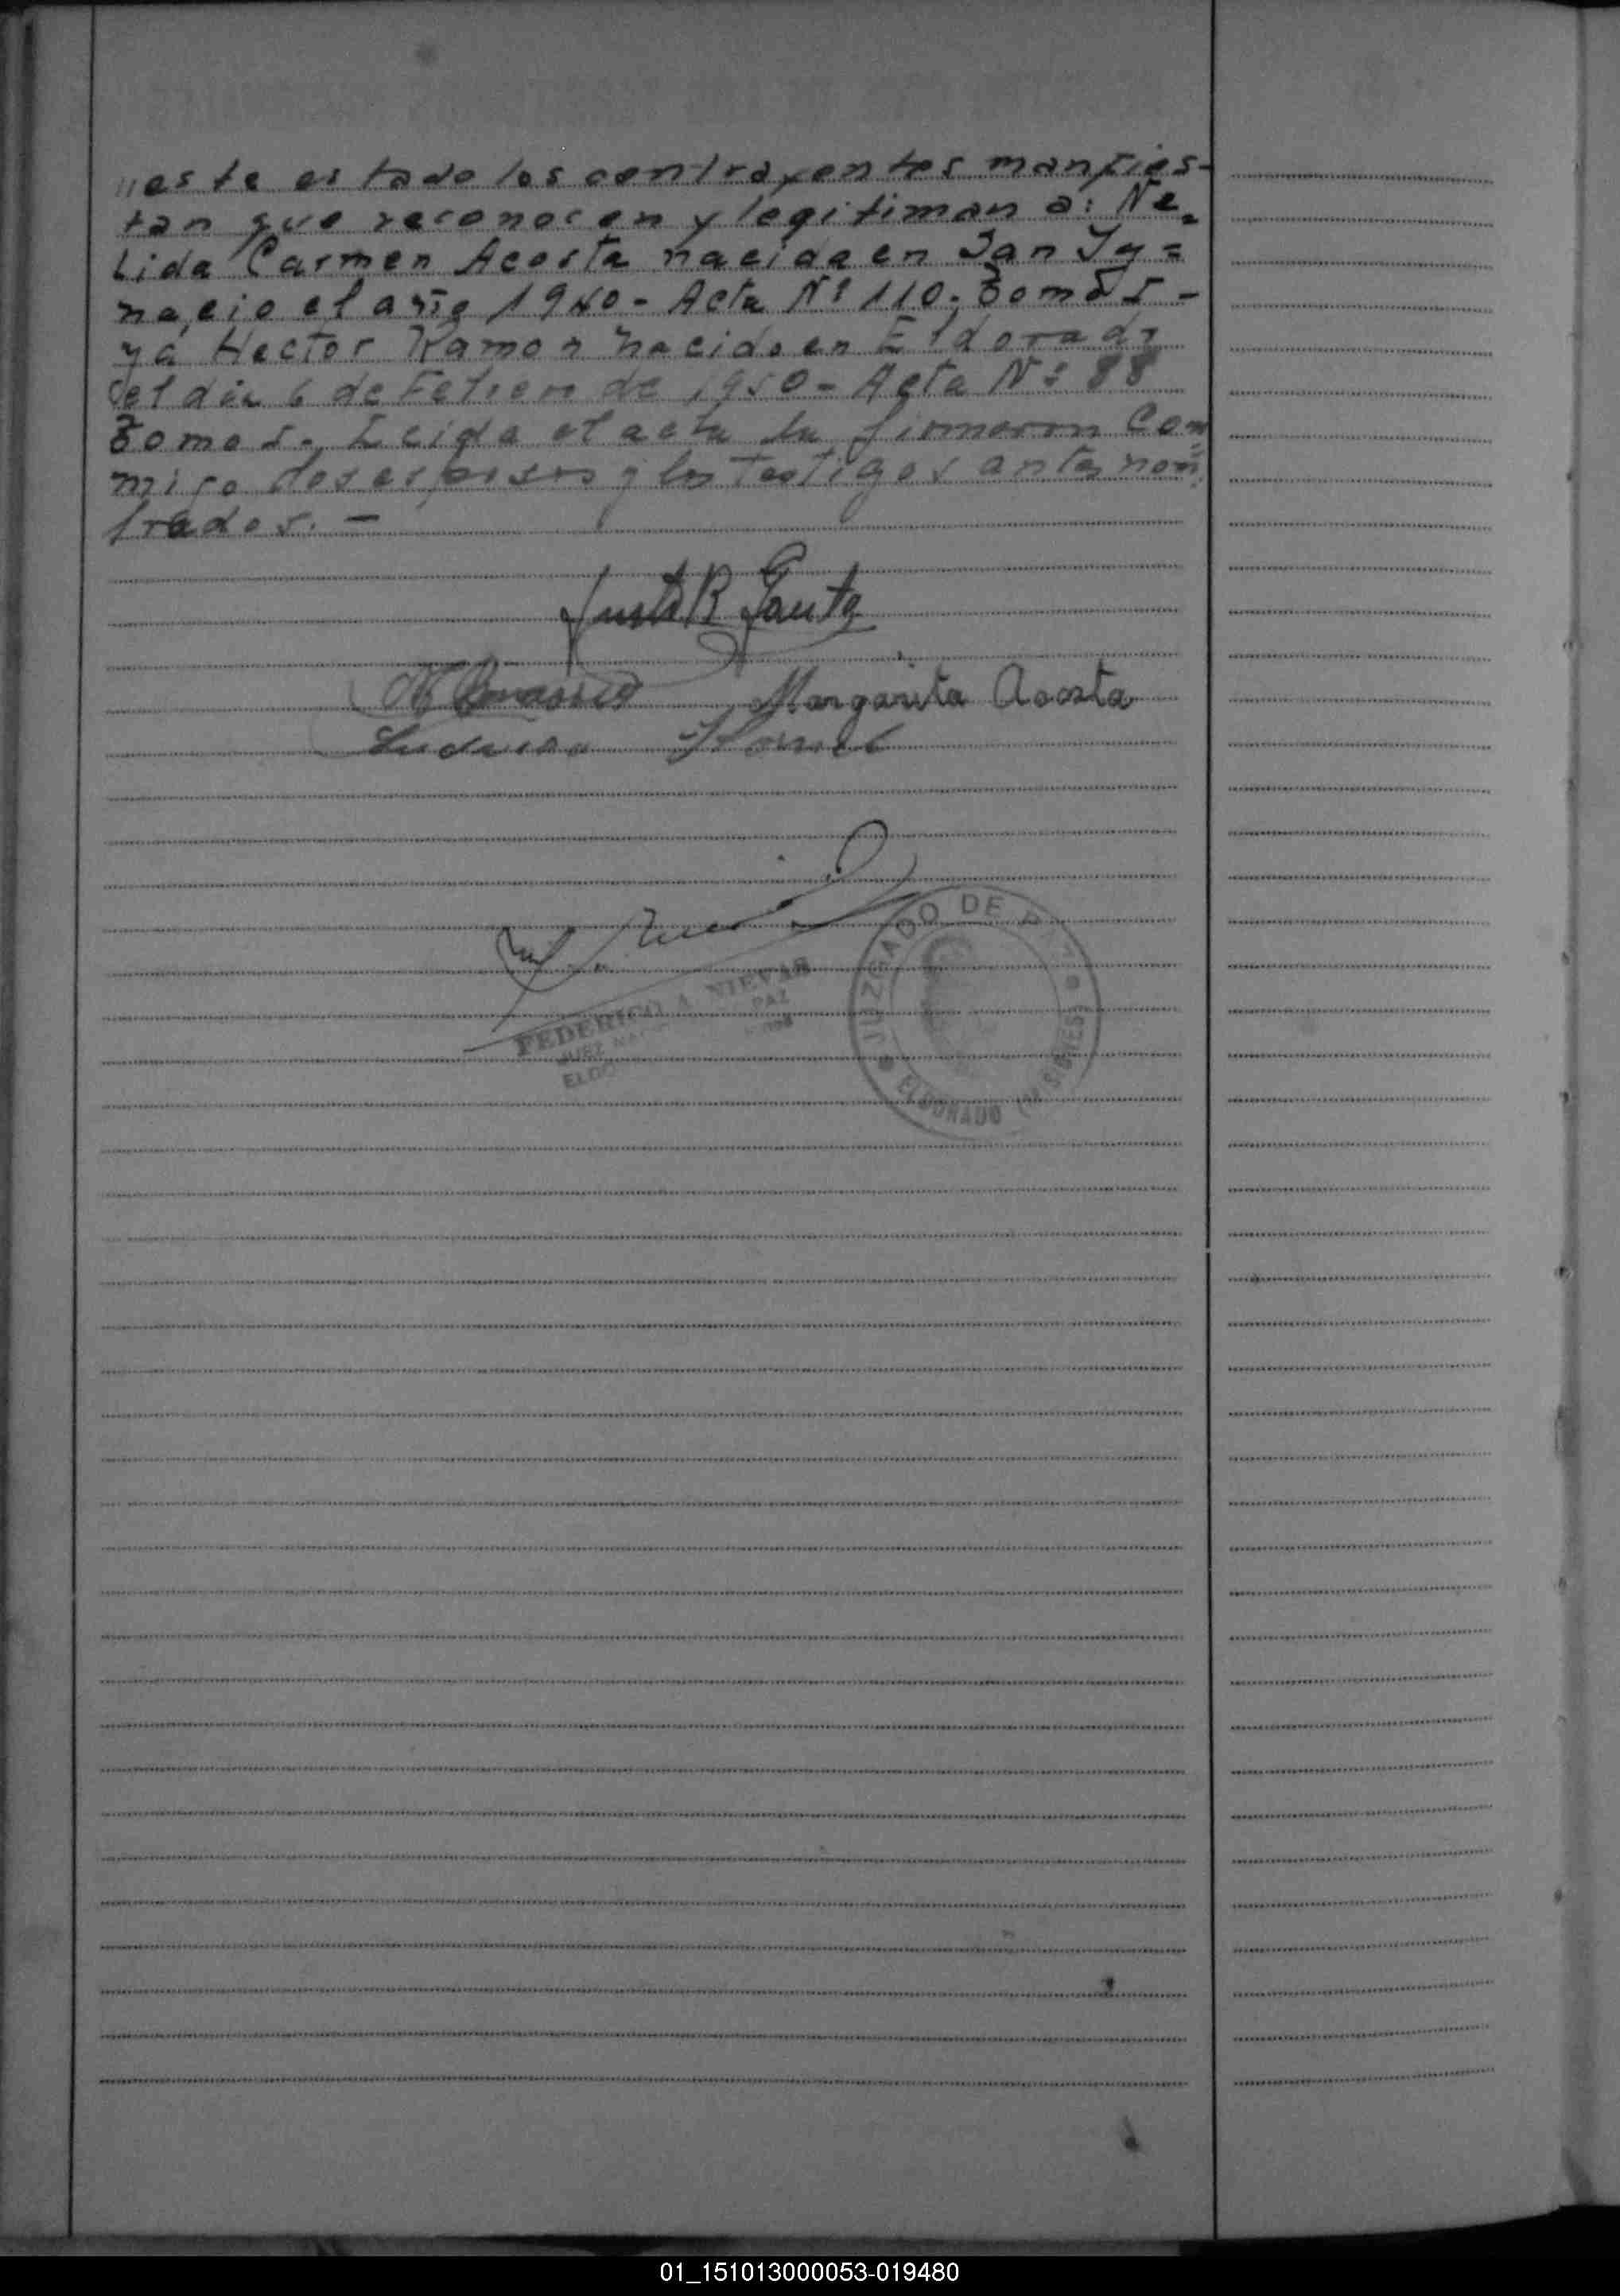 "este estado los contrayentes manifies-
tan que reconocen y legitiman a: Ne=
lida Carmen Acosta nacida en San Ig=
nacio el año 1940 - Acta Nº 110. Tomo I -
y a Hector Ramon nacido en Eldorado
el dia 6 de Febrero de 1950 - Acta Nº 88
Tomo I. Leida el acta la firmaron Con=
migo los esposos y los testigos antes nom=
brados. -
Justo R
Margarita Acosta
FEDERICO A. NIEVAS
PAZ
JUEZ
JUZGADO DE PAZ
ELDORADO (MISIONES)
01_151013000053-019480